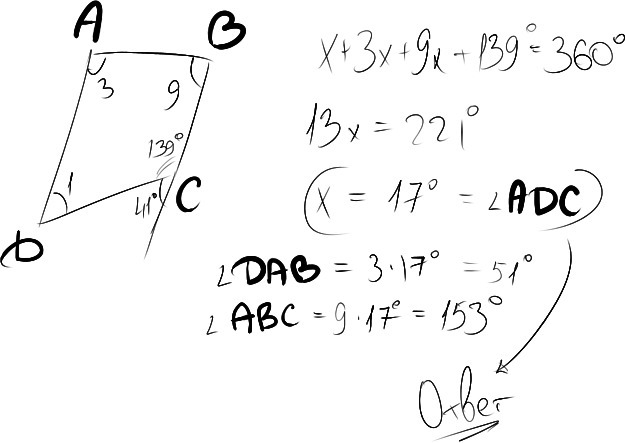 A B
3 9
139°
1
41° C
D
x+3x+9x+139°=360°
13x = 221°
x = 17° = ∠ADC
∠DAB = 3·17° = 51°
∠ABC = 9·17° = 153°
Ответ